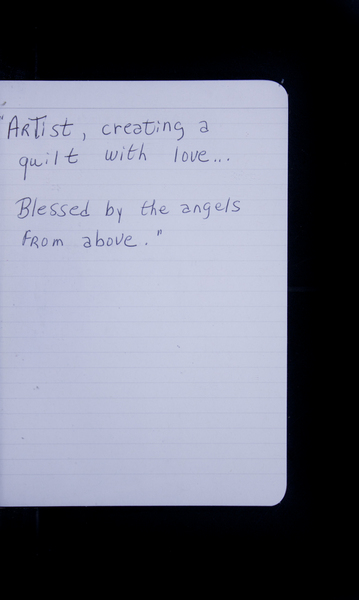 "Artist, creating a
quilt with love...
Blessed by the angels
from above."